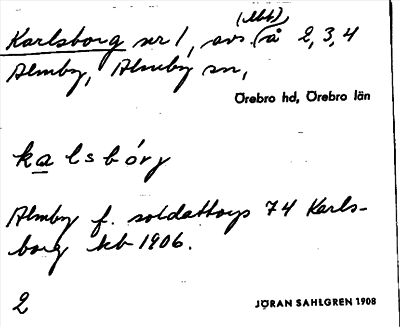 (Mbl)
Karlsborg nr 1, avs. å 2, 3, 4
Almby, Almby sn,
Örebro hd, Örebro län
kalsbórj
Almby f. soldattorp 74 Karls-
borg kb 1906.
2 JÖRAN SAHLGREN 1908